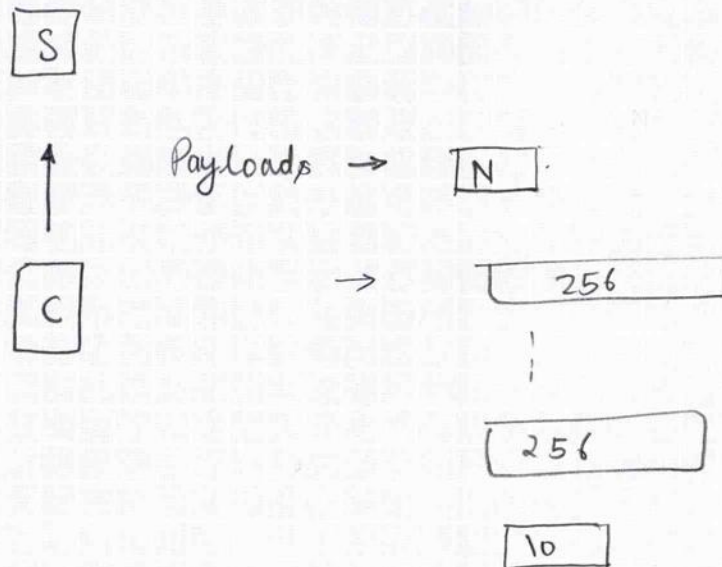 S
Payloads → N
C → 256
256
10